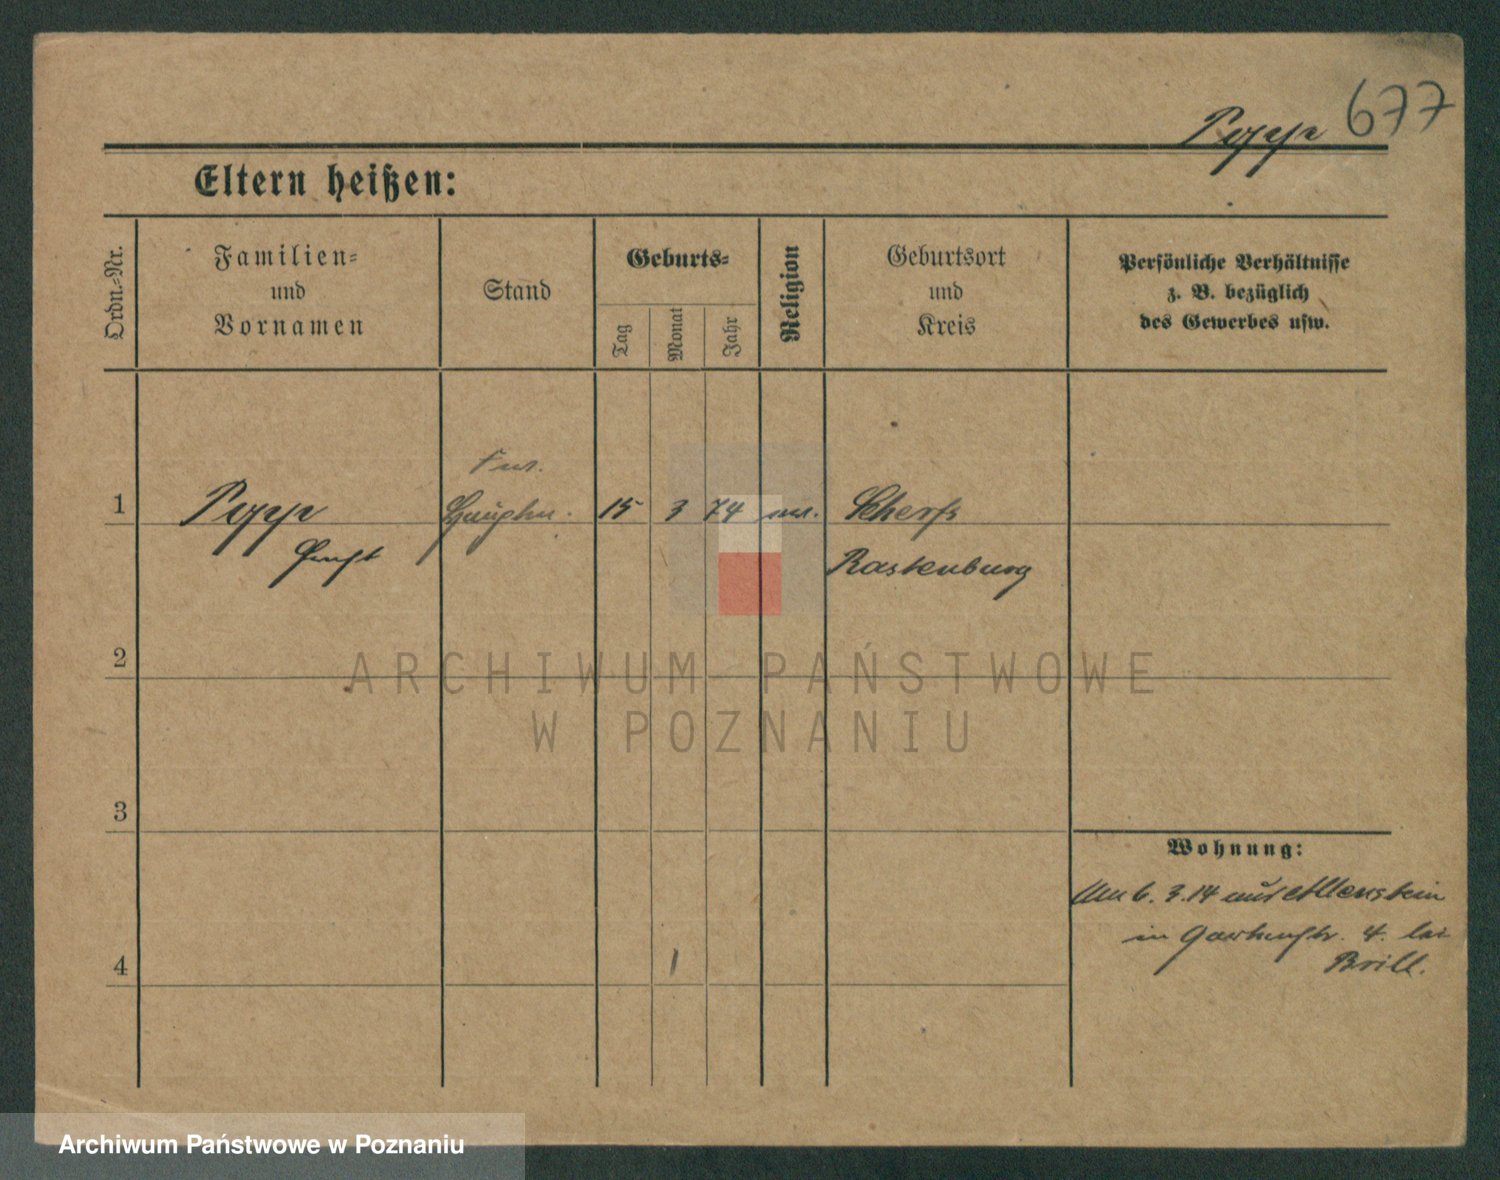 677
Popp
Eltern heißen:
Ordn.-Nr.
Familien-
und
Vornamen
Stand
Geburts-
Tag
Monat
Jahr
Religion
Geburtsort
und
Kreis
Persönliche Verhältnisse
z. B. bezüglich
des Gewerbes usw.
1
Popp
Hauptm.
15
3
74
Rastenburg
2
ARCHIWUM PAŃSTWOWE
W POZNANIU
3
Wohnung:
6. 3. 14 aus Allenstein
in Gartenstr. 4. bei
Brill.
4
Archiwum Państwowe w Poznaniu